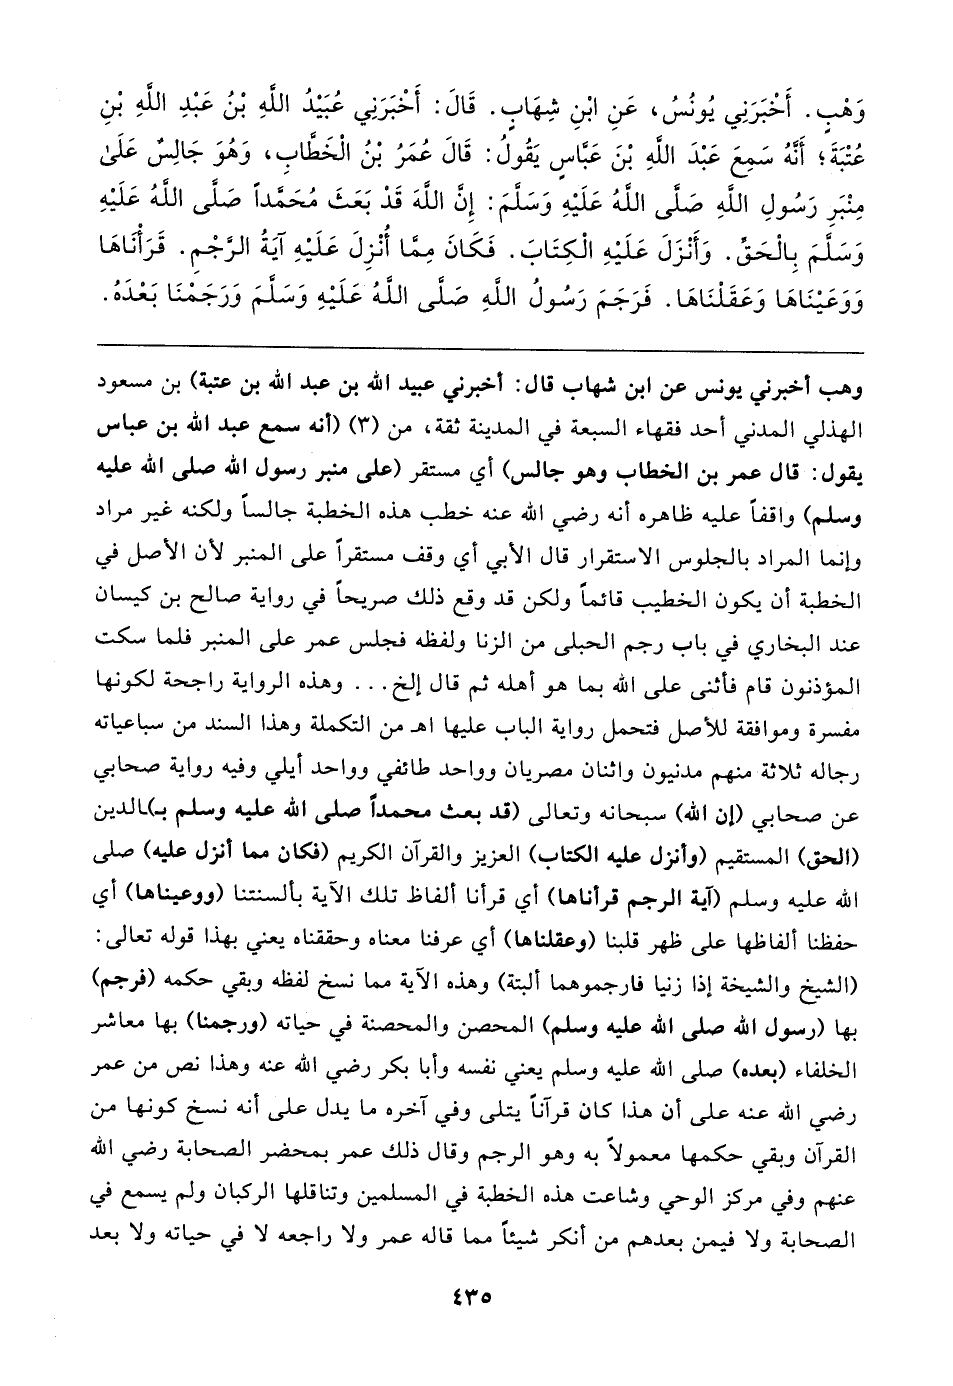 وَهْبٍ. أَخْبَرَنِي يُونُسُ، عَنِ ابْنِ شِهَابٍ. قَالَ: أَخْبَرَنِي عُبَيْدُ اللَّهِ بْنُ عَبْدِ اللَّهِ بْنِ
عُتْبَةَ؛ أَنَّهُ سَمِعَ عَبْدَ اللَّهِ بْنَ عَبَّاسٍ يَقُولُ: قَالَ عُمَرُ بْنُ الْخَطَّابِ، وَهُوَ جَالِسٌ عَلَىٰ
مِنْبَرِ رَسُولِ اللَّهِ صَلَّى اللَّهُ عَلَيْهِ وَسَلَّمَ: إِنَّ اللَّهَ قَدْ بَعَثَ مُحَمَّداً صَلَّى اللَّهُ عَلَيْهِ
وَسَلَّمَ بِالْحَقِّ. وَأَنْزَلَ عَلَيْهِ الْكِتَابَ. فَكَانَ مِمَّا أُنْزِلَ عَلَيْهِ آيَةُ الرَّجْمِ. قَرَأْنَاهَا
وَوَعَيْنَاهَا وَعَقَلْنَاهَا. فَرَجَمَ رَسُولُ اللَّهِ صَلَّى اللَّهُ عَلَيْهِ وَسَلَّمَ وَرَجَمْنَا بَعْدَهُ.
وهب أخبرني يونس عن ابن شهاب قال: أخبرني عبيد الله بن عبد الله بن عتبة) بن مسعود
الهذلي المدني أحد فقهاء السبعة في المدينة ثقة، من (٣) (أنه سمع عبد الله بن عباس
يقول: قال عمر بن الخطاب وهو جالس) أي مستقر (على منبر رسول الله صلى الله عليه
وسلم) واقفاً عليه ظاهره أنه رضي الله عنه خطب هذه الخطبة جالساً ولكنه غير مراد
وإنما المراد بالجلوس الاستقرار قال الأبي أي وقف مستقراً على المنبر لأن الأصل في
الخطبة أن يكون الخطيب قائماً ولكن قد وقع ذلك صريحاً في رواية صالح بن كيسان
عند البخاري في باب رجم الحبلى من الزنا ولفظه فجلس عمر على المنبر فلما سكت
المؤذنون قام فأثنى على الله بما هو أهله ثم قال إلخ... وهذه الرواية راجحة لكونها
مفسرة وموافقة للأصل فتحمل رواية الباب عليها اهـ من التكملة وهذا السند من سباعياته
رجاله ثلاثة منهم مدنيون واثنان مصريان وواحد طائفي وواحد أيلي وفيه رواية صحابي
عن صحابي (إن الله) سبحانه وتعالى (قد بعث محمداً صلى الله عليه وسلم بـ)ـالدين
(الحق) المستقيم (وأنزل عليه الكتاب) العزيز والقرآن الكريم (فكان مما أنزل عليه) صلى
الله عليه وسلم (آية الرجم قرأناها) أي قرأنا ألفاظ تلك الآية بألسنتنا (ووعيناها) أي
حفظنا ألفاظها على ظهر قلبنا (وعقلناها) أي عرفنا معناه وحققناه يعني بهذا قوله تعالى:
(الشيخ والشيخة إذا زنيا فارجموهما ألبتة) وهذه الآية مما نسخ لفظه وبقي حكمه (فرجم)
بها (رسول الله صلى الله عليه وسلم) المحصن والمحصنة في حياته (ورجمنا) بها معاشر
الخلفاء (بعده) صلى الله عليه وسلم يعني نفسه وأبا بكر رضي الله عنه وهذا نص من عمر
رضي الله عنه على أن هذا كان قرآناً يتلى وفي آخره ما يدل على أنه نسخ كونها من
القرآن وبقي حكمها معمولاً به وهو الرجم وقال ذلك عمر بمحضر الصحابة رضي الله
عنهم وفي مركز الوحي وشاعت هذه الخطبة في المسلمين وتناقلها الركبان ولم يسمع في
الصحابة ولا فيمن بعدهم من أنكر شيئاً مما قاله عمر ولا راجعه لا في حياته ولا بعد
٤٣٥